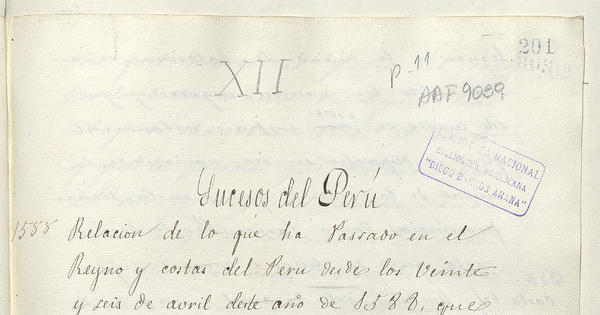 201
XII
P-11
AAF9039
BIBLIOTECA NACIONAL
BIBLIOTECA AMERICANA
"DIEGO BARROS ARANA"
Sucesos del Perú
1588
Relacion de lo que ha Passado en el
Reyno y costas del Peru desde los Veinte
y seis de avril deste año de 1588, que